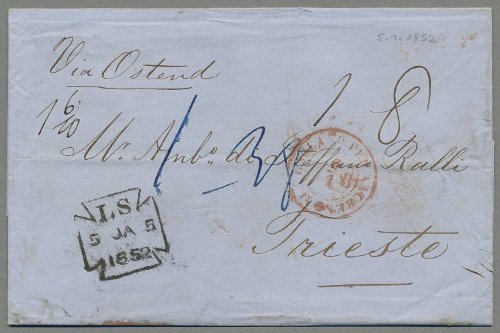 5.1.1852
Via Ostend
1 8
Mr. Ambo. di Steffano Ralli
Trieste
LS
5 JA 5
1852